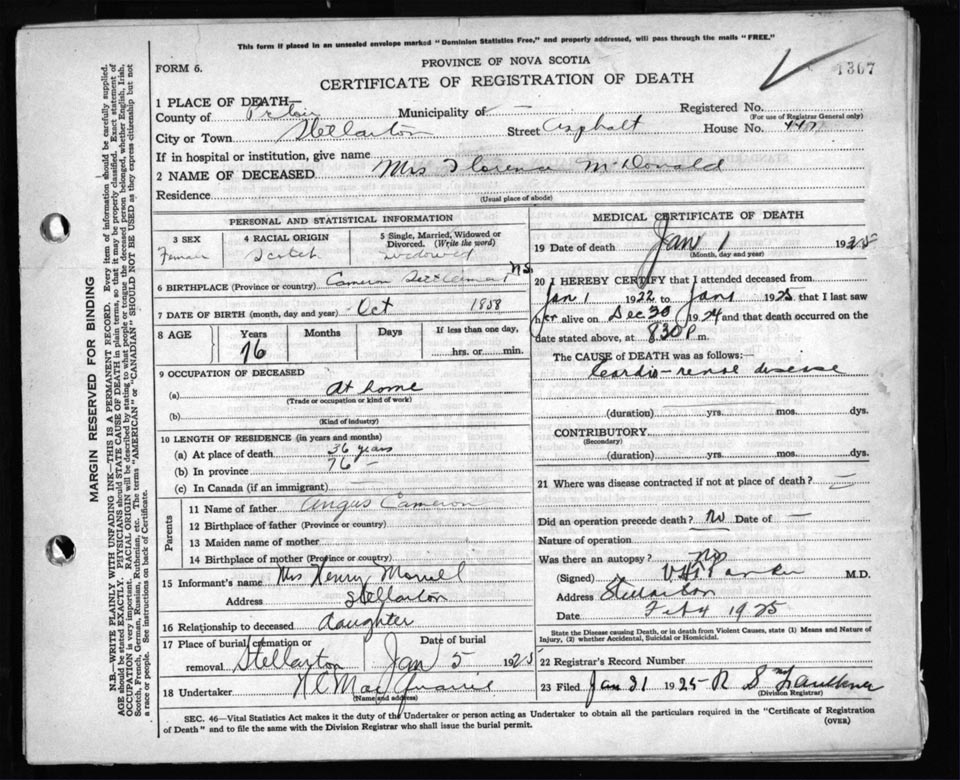 This form if placed in an unsealed envelope marked "Dominion Statistics Free," and properly addressed, will pass through the mails "FREE."
PROVINCE OF NOVA SCOTIA
FORM 6.
1307
CERTIFICATE OF REGISTRATION OF DEATH
1 PLACE OF DEATH—
County of Pictou Municipality of — Registered No.
(For use of Registrar General only)
City or Town Stellarton Street Asphalt House No.
If in hospital or institution, give name
2 NAME OF DECEASED Mrs Florence McDonald
Residence
(Usual place of abode)
PERSONAL AND STATISTICAL INFORMATION
3 SEX 4 RACIAL ORIGIN 5 Single, Married, Widowed or Divorced. (Write the word)
Female Scotch widowed
6 BIRTHPLACE (Province or country) Cameron Settlement, N.S.
7 DATE OF BIRTH (month, day and year) Oct 1858
8 AGE Years Months Days If less than one day,
76 hrs. or min.
9 OCCUPATION OF DECEASED
(a) At home
(Trade or occupation or kind of work)
(b)
(Kind of industry)
10 LENGTH OF RESIDENCE (in years and months)
(a) At place of death 36 years
(b) In province 76 —
(c) In Canada (if an immigrant) —
Parents
11 Name of father Angus Cameron
12 Birthplace of father (Province or country)
13 Maiden name of mother
14 Birthplace of mother (Province or country)
15 Informant's name Mrs Henry
Address Stellarton
16 Relationship to deceased daughter
17 Place of burial, cremation or removal Stellarton Date of burial Jan 5 1925
18 Undertaker
(Name and address)
MEDICAL CERTIFICATE OF DEATH
19 Date of death Jan 1 1925
(Month, day and year)
20 I HEREBY CERTIFY that I attended deceased from
Jan 1 1922 to Jan 1 1925 that I last saw
her alive on Dec 30 1924 and that death occurred on the
date stated above, at 8.30 P m.
The CAUSE of DEATH was as follows:—
Cardio-renal disease
(duration) yrs. mos. dys.
CONTRIBUTORY
(Secondary)
(duration) yrs. mos. dys.
21 Where was disease contracted if not at place of death? —
Did an operation precede death? No Date of —
Nature of operation
Was there an autopsy? No
(Signed) Parker M.D.
Address Stellarton
Date Feb 4 1925
State the Disease causing Death, or in death from Violent Causes, state (1) Means and Nature of
Injury, (2) whether Accidental, Suicidal or Homicidal.
22 Registrar's Record Number
23 Filed Jan 21 1925 Faulkner
(Division Registrar)
SEC. 46—Vital Statistics Act makes it the duty of the Undertaker or person acting as Undertaker to obtain all the particulars required in the "Certificate of Registration
of Death" and to file the same with the Division Registrar who shall issue the burial permit. (OVER)
MARGIN RESERVED FOR BINDING
N.B.—WRITE PLAINLY WITH UNFADING INK—THIS IS A PERMANENT RECORD. Every item of information should be carefully supplied.
AGE should be stated EXACTLY. PHYSICIANS should STATE CAUSE OF DEATH in plain terms, so that it may be properly classified. Exact statement of
OCCUPATION is very important. RACIAL ORIGIN will be described by stating to what people or tongue the deceased person belonged, whether English, Irish,
Scotch, French, German, Russian, Ruthenian, etc. The terms "AMERICAN" or "CANADIAN" SHOULD NOT BE USED as they express citizenship but not
a race or people. See instructions on back of Certificate.